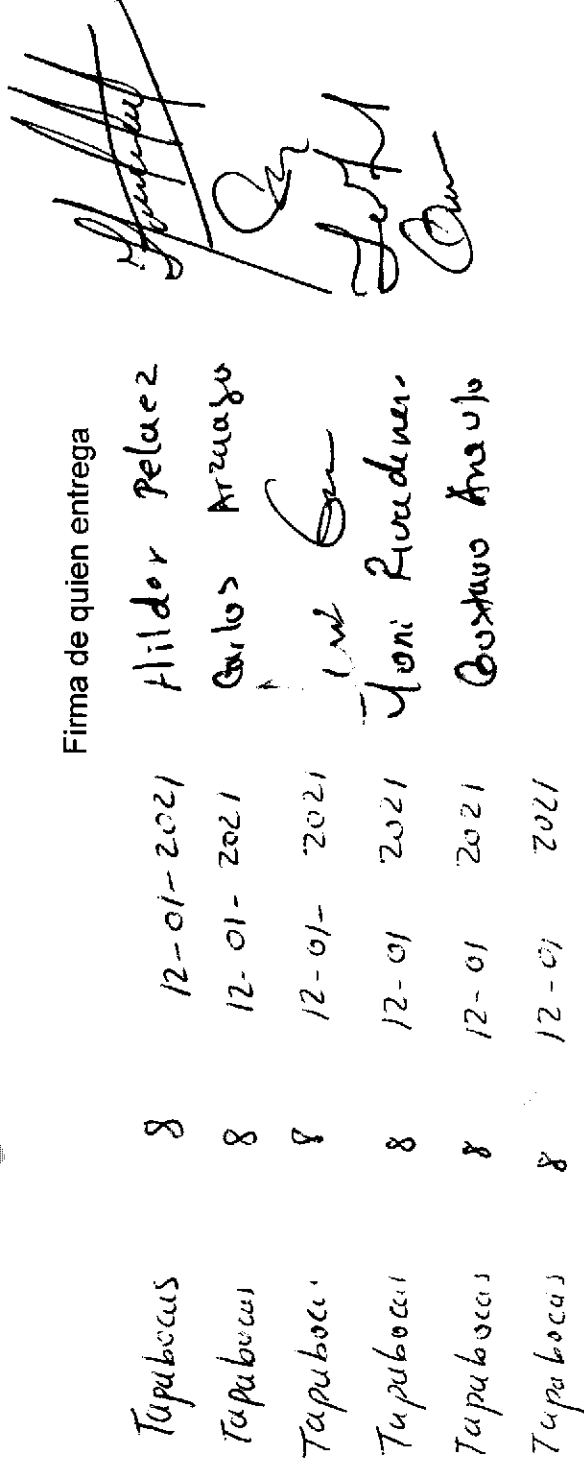 Firma de quien entrega
Tapabocas 8 12-01-2021 Hilder Pelaez
Tapabocas 8 12-01-2021 Carlos Arzuaga
Tapaboca 8 12-01-2021
Tapabocas 8 12-01 2021 Yoni Rivadener.
Tapabocas 8 12-01 2021 Gustavo Araujo
Tapabocas 8 12-01 2021